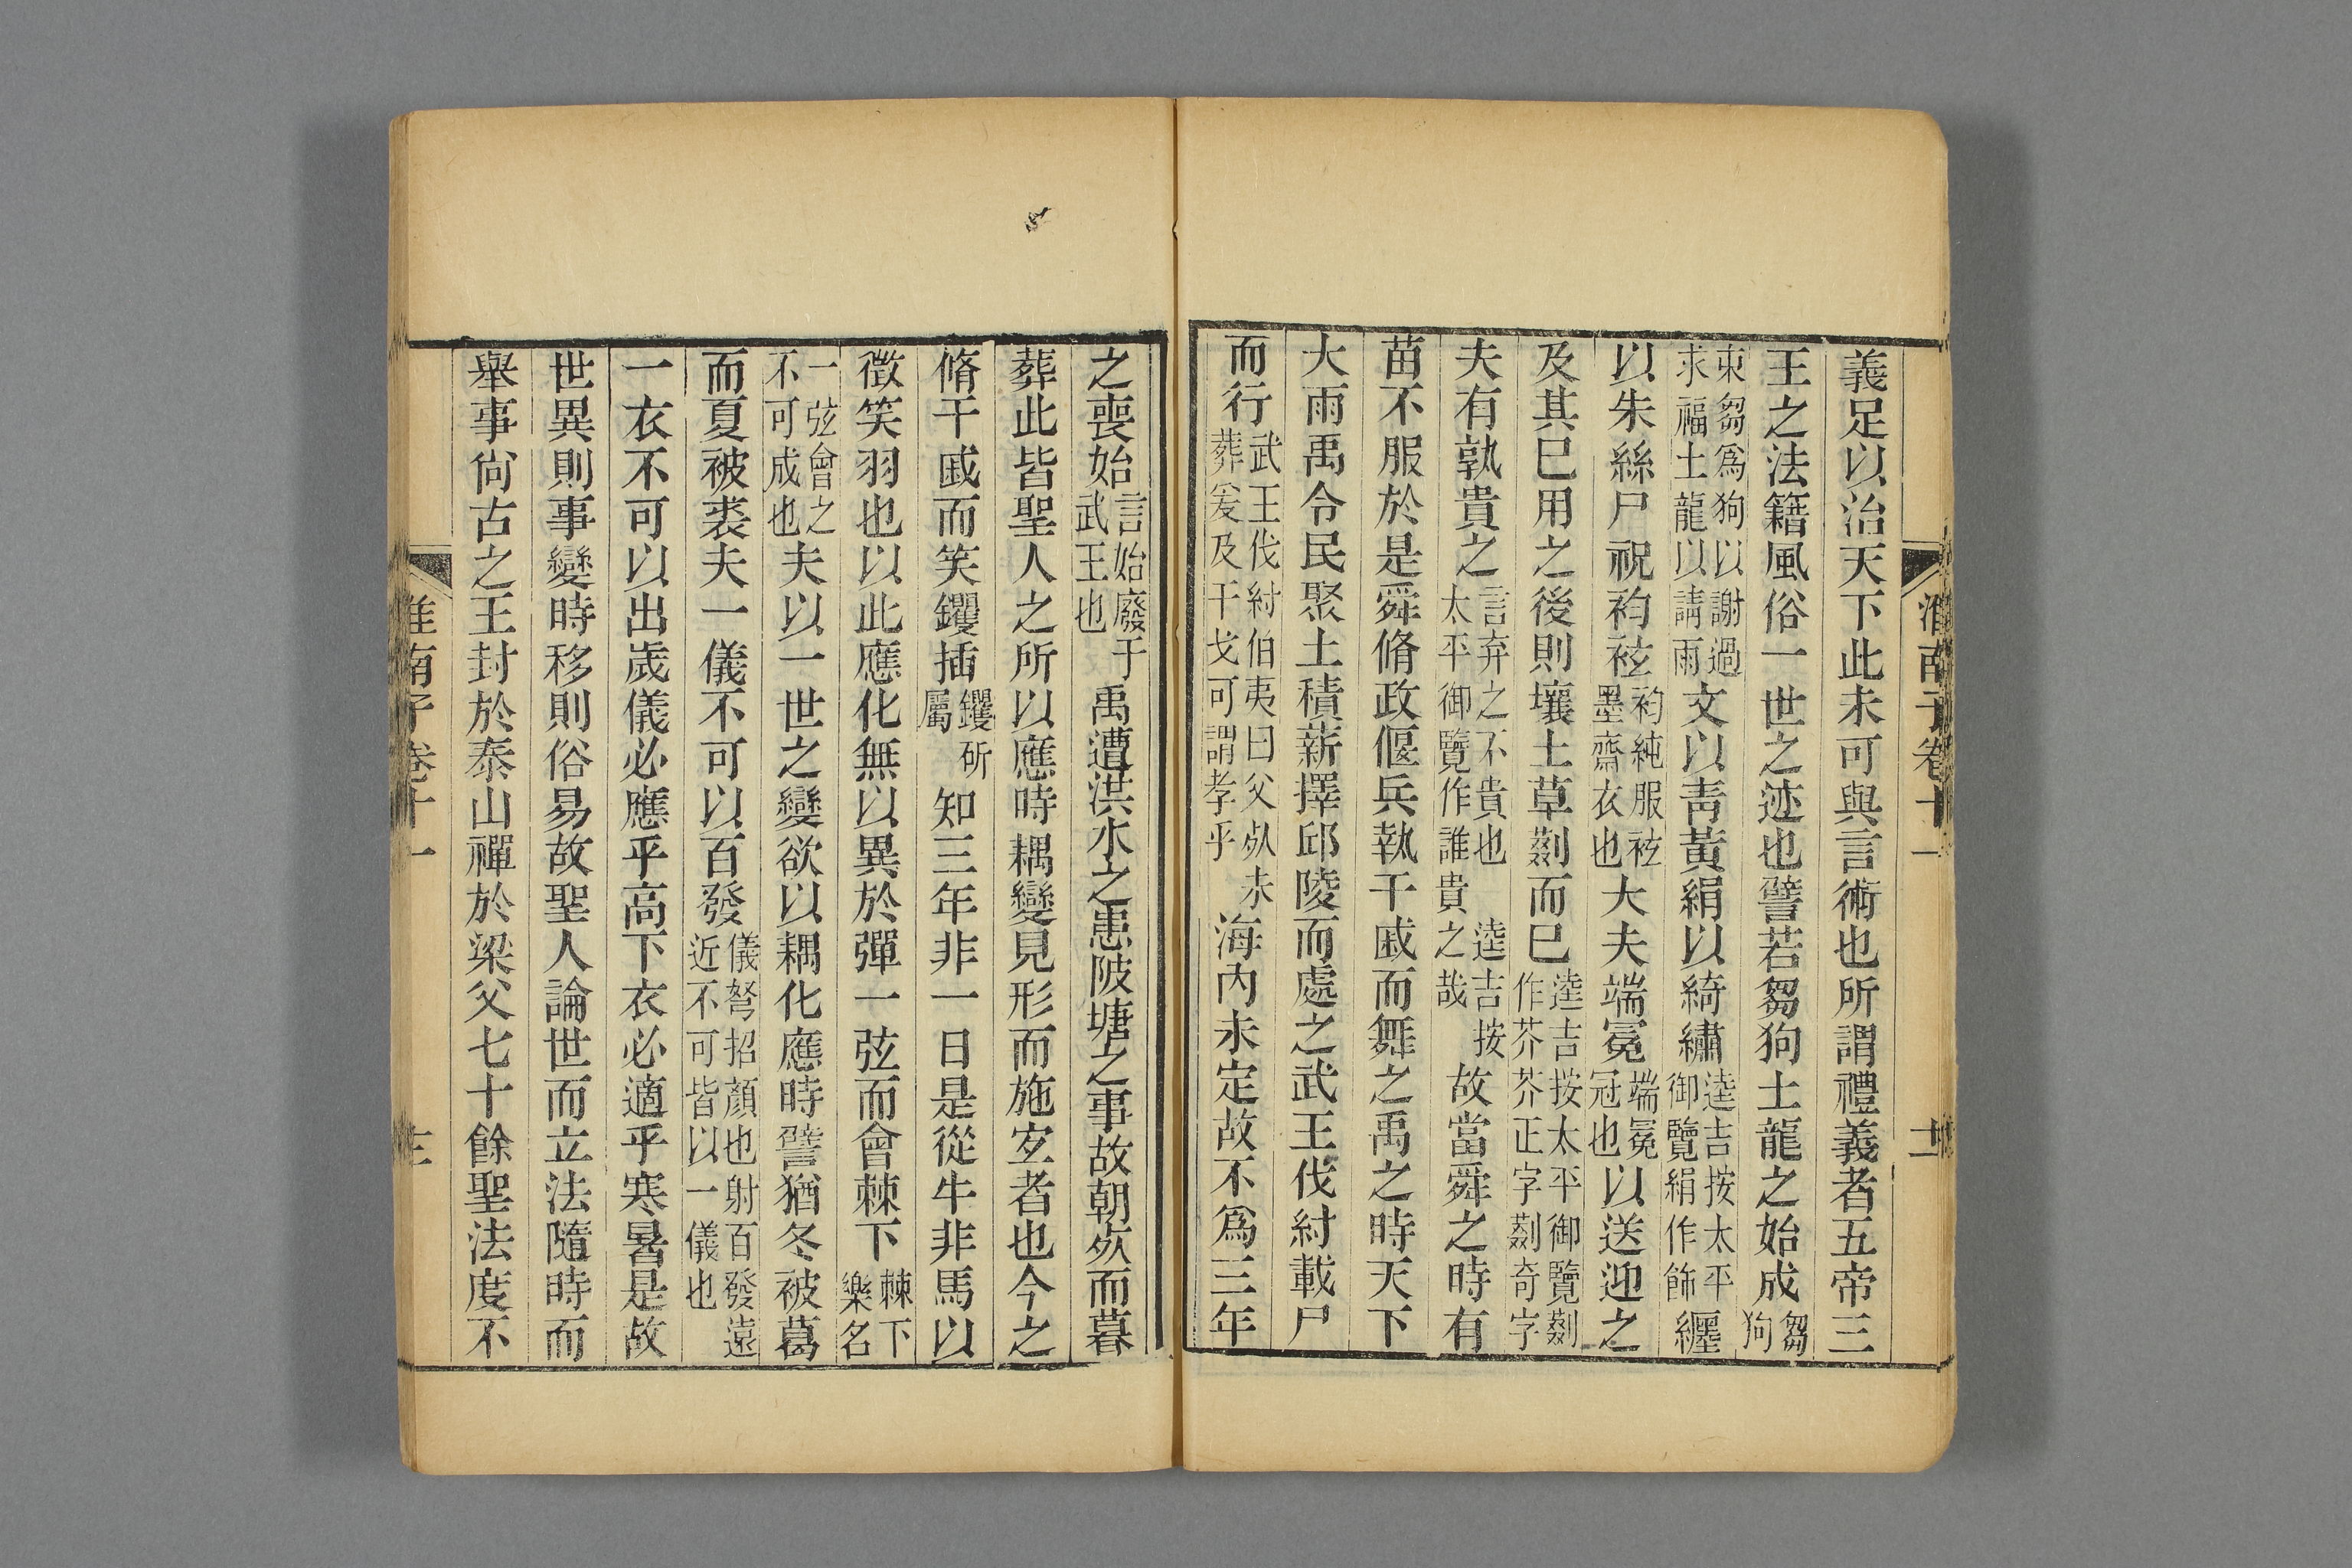 淮南子卷十一
義足以治天下此未可與言術也所謂禮義者五帝三
王之法籍風俗一世之迹也譬若芻狗土龍之始成芻狗
束芻爲狗以謝過求福土龍以請雨文以靑黃絹以綺繡逵吉按太平御覽絹作飾纒
以朱絲尸祝袀袨袀純服袨墨齋衣也大夫端冕端冕冠也以送迎之
及其巳用之後則壤土草㓹而巳逵吉按太平御覽㓹作芥芥正字㓹奇字
夫有孰貴之言弃之不貴也逵吉按太平御覽作誰貴之哉故當舜之時有
苗不服於是舜脩政偃兵執干戚而舞之禹之時天下
大雨禹令民聚土積薪擇邱陵而處之武王伐紂載尸
而行武王伐紂伯夷曰父死未葬爰及干戈可謂孝乎海內未定故不爲三年
之喪始言始廢于武王也禹遭洪水之患陂塘之事故朝死而暮
葬此皆聖人之所以應時耦變見形而施宜者也今之
脩干戚而笑钁插钁斫屬知三年非一日是從牛非馬以
徵笑羽也以此應化無以異於彈一弦而會棘下棘下樂名
一弦會之不可成也夫以一世之變欲以耦化應時譬猶冬被葛
而夏被裘夫一儀不可以百發儀弩招顏也射百發遠近不可皆以一儀也
一衣不可以出歲儀必應乎高下衣必適乎寒暑是故
世異則事變時移則俗易故聖人論世而立法隨時而
舉事尙古之王封於泰山禪於梁父七十餘聖法度不
淮南子卷十一